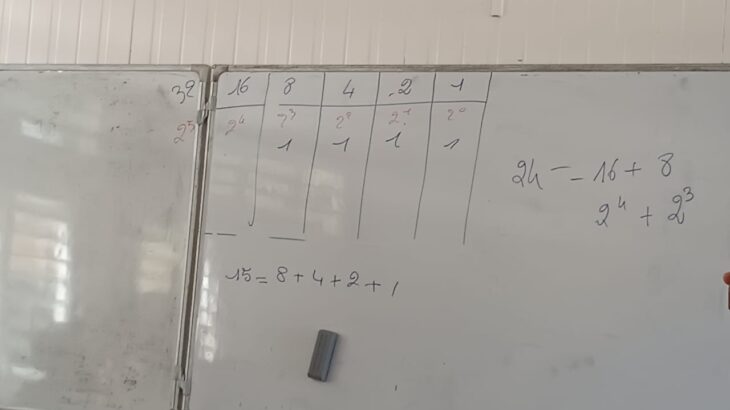 32 16 8 4 2 1
2⁵ 2⁴ 2³ 2² 2¹ 2⁰
1 1 1 1
24 = 16 + 8
2⁴ + 2³
15 = 8 + 4 + 2 + 1